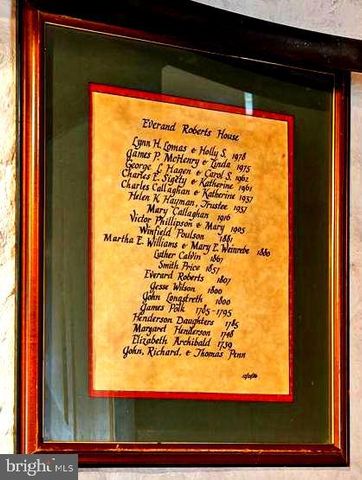 Everand Roberts House
Lynn H. Lomas & Holly S. 1978
James P. McHenry & Linda 1975
George L. Hagen & Carol S. 1962
Charles E. Sigety & Katherine 1961
Charles Callaghan & Katherine 1937
Helen K. Hayman, Trustee 1937
Mary Callaghan 1916
Victor Phillipson & Mary 1905
Winfield Poulson 1881
Martha E. Williams & Mary E. Weinrebe 1880
Luther Calvin 1867
Smith Price 1857
Everard Roberts 1807
Jesse Wilson 1800
John Longstreth 1800
James Polk 1785-1795
Henderson Daughters 1785
Margaret Henderson 1748
Elizabeth Archibald 1739
John, Richard, & Thomas Penn
bright MLS